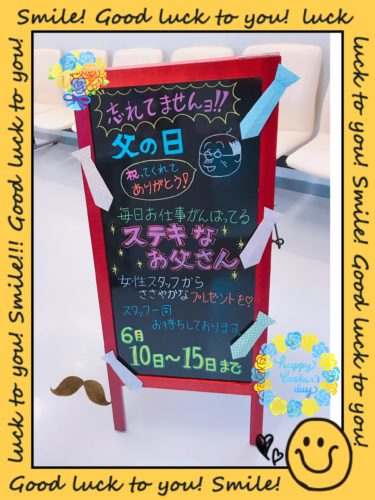 Smile! Good luck to you! luck
luck to you! Smile!!! Good luck to you!
luck to you! Smile! Good luck to you!
忘れてませんョ!!
父の日
祝ってくれて
ありがとう!
毎日お仕事がんばってる
ステキな
お父さん
女性スタッフから
ささやかなプレゼントを♡
スタッフ一同
お待ちしております
6月
10日〜15日まで
happy
Father's
day
Good luck to you! Smile!